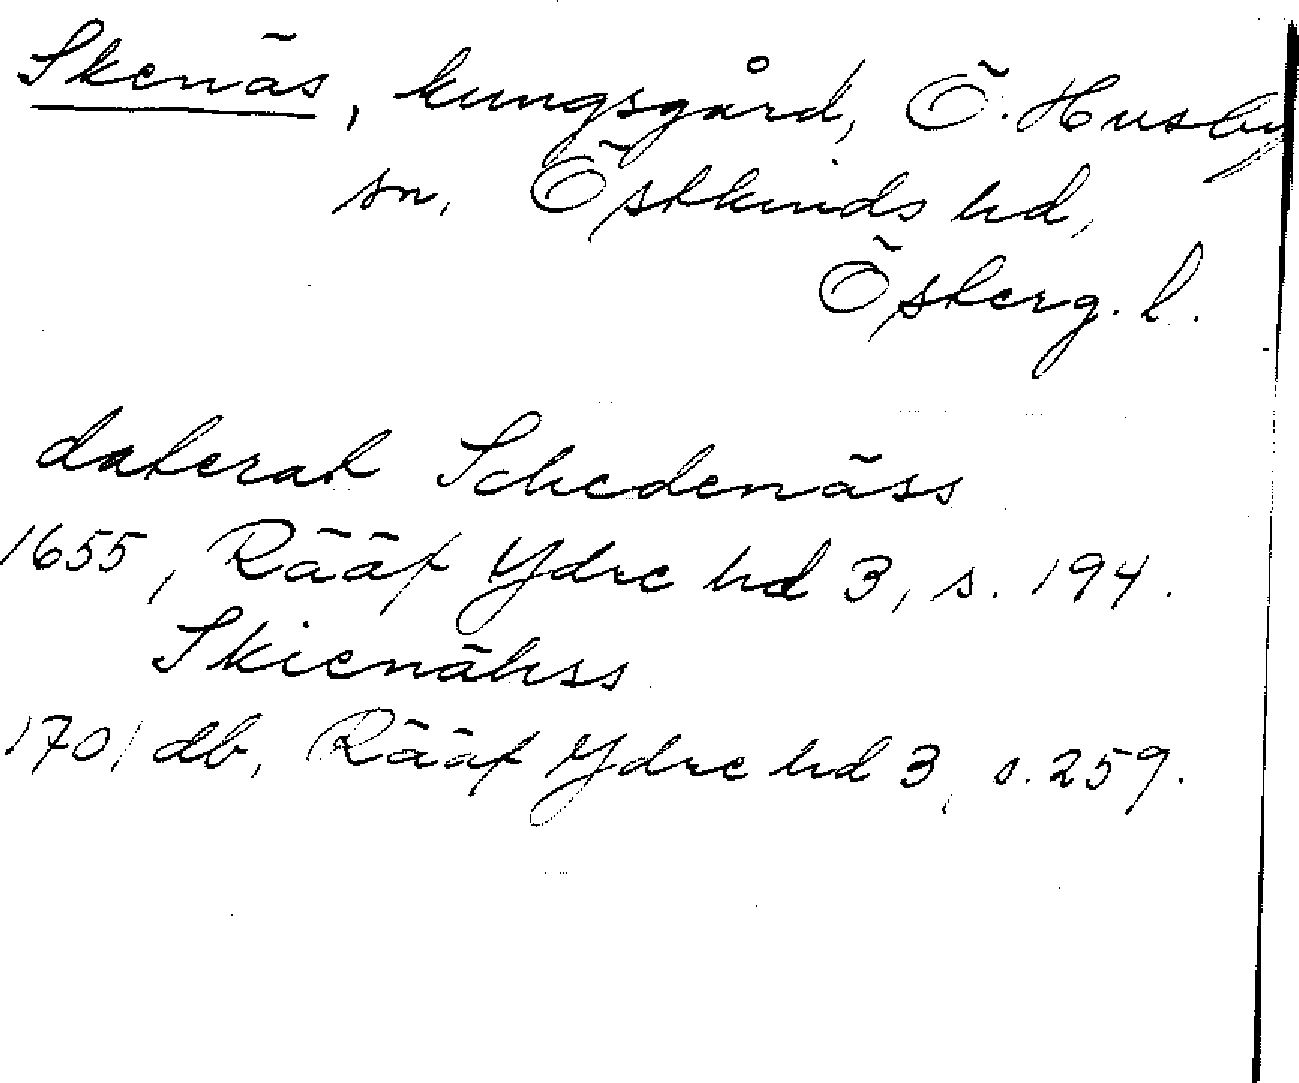 Skenäs, kungsgård, Ö. Husby
sn, Östkinds hd,
Österg. l.
daterat Schedenäss
1655, Rääf Ydre hd 3, s. 194.
Skienähss
1701 db, Rääf Ydre hd 3, s. 259.